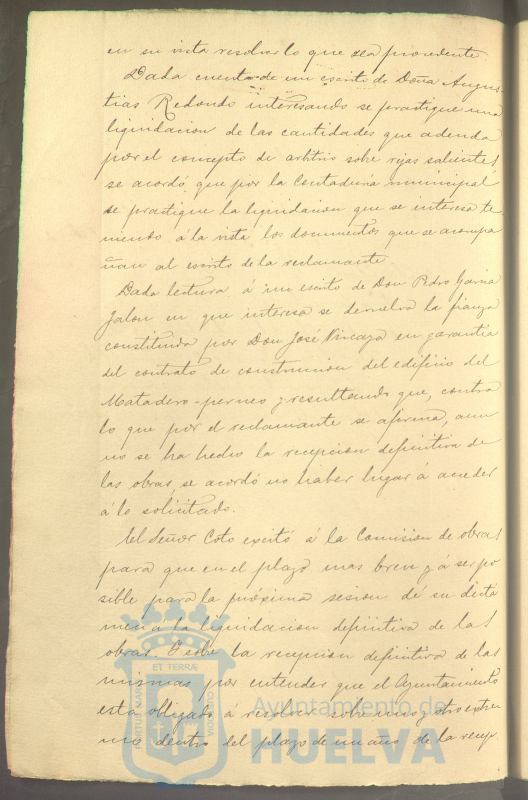 en su vista resolver lo que sea procedente.
Dada cuenta de un escrito de Doña Angus-
tias Redondo interesando se practique una
liquidacion de las cantidades que adeuda
por el concepto de arbitrio sobre rejas salientes
se acordó que por la Contaduria municipal
se practique la liquidacion que se interesa te
niendo á la vista los documentos que se acompa
ñan al escrito de la reclamante.
Dada lectura á un escrito de Don Pedro Garcia
Jalon en que interesa se devuelva la fianza
constituida por Don José Vizcaya en garantia
del contrato de construccion del edificio del
Matadero-perneo y resultando que, contra
lo que por el reclamante se afirma, aun
no se ha hecho la recepcion definitiva de
las obras, se acordó no haber lugar á acceder
á lo solicitado.
El Señor Coto excitó á la Comision de obras
para que en el plazo mas breve y á ser po
sible para la próxima sesion dé su dicta
men á la liquidacion definitiva de las
obras. Y sobre la recepcion definitiva de las
mismas por entender que el Ayuntamiento
está obligado á resolver sobre uno y otro extre
mo dentro del plazo de un año de la recep
PORTUS MARIS
ET TERRÆ
CUSTODIA
Ayuntamiento de
HUELVA